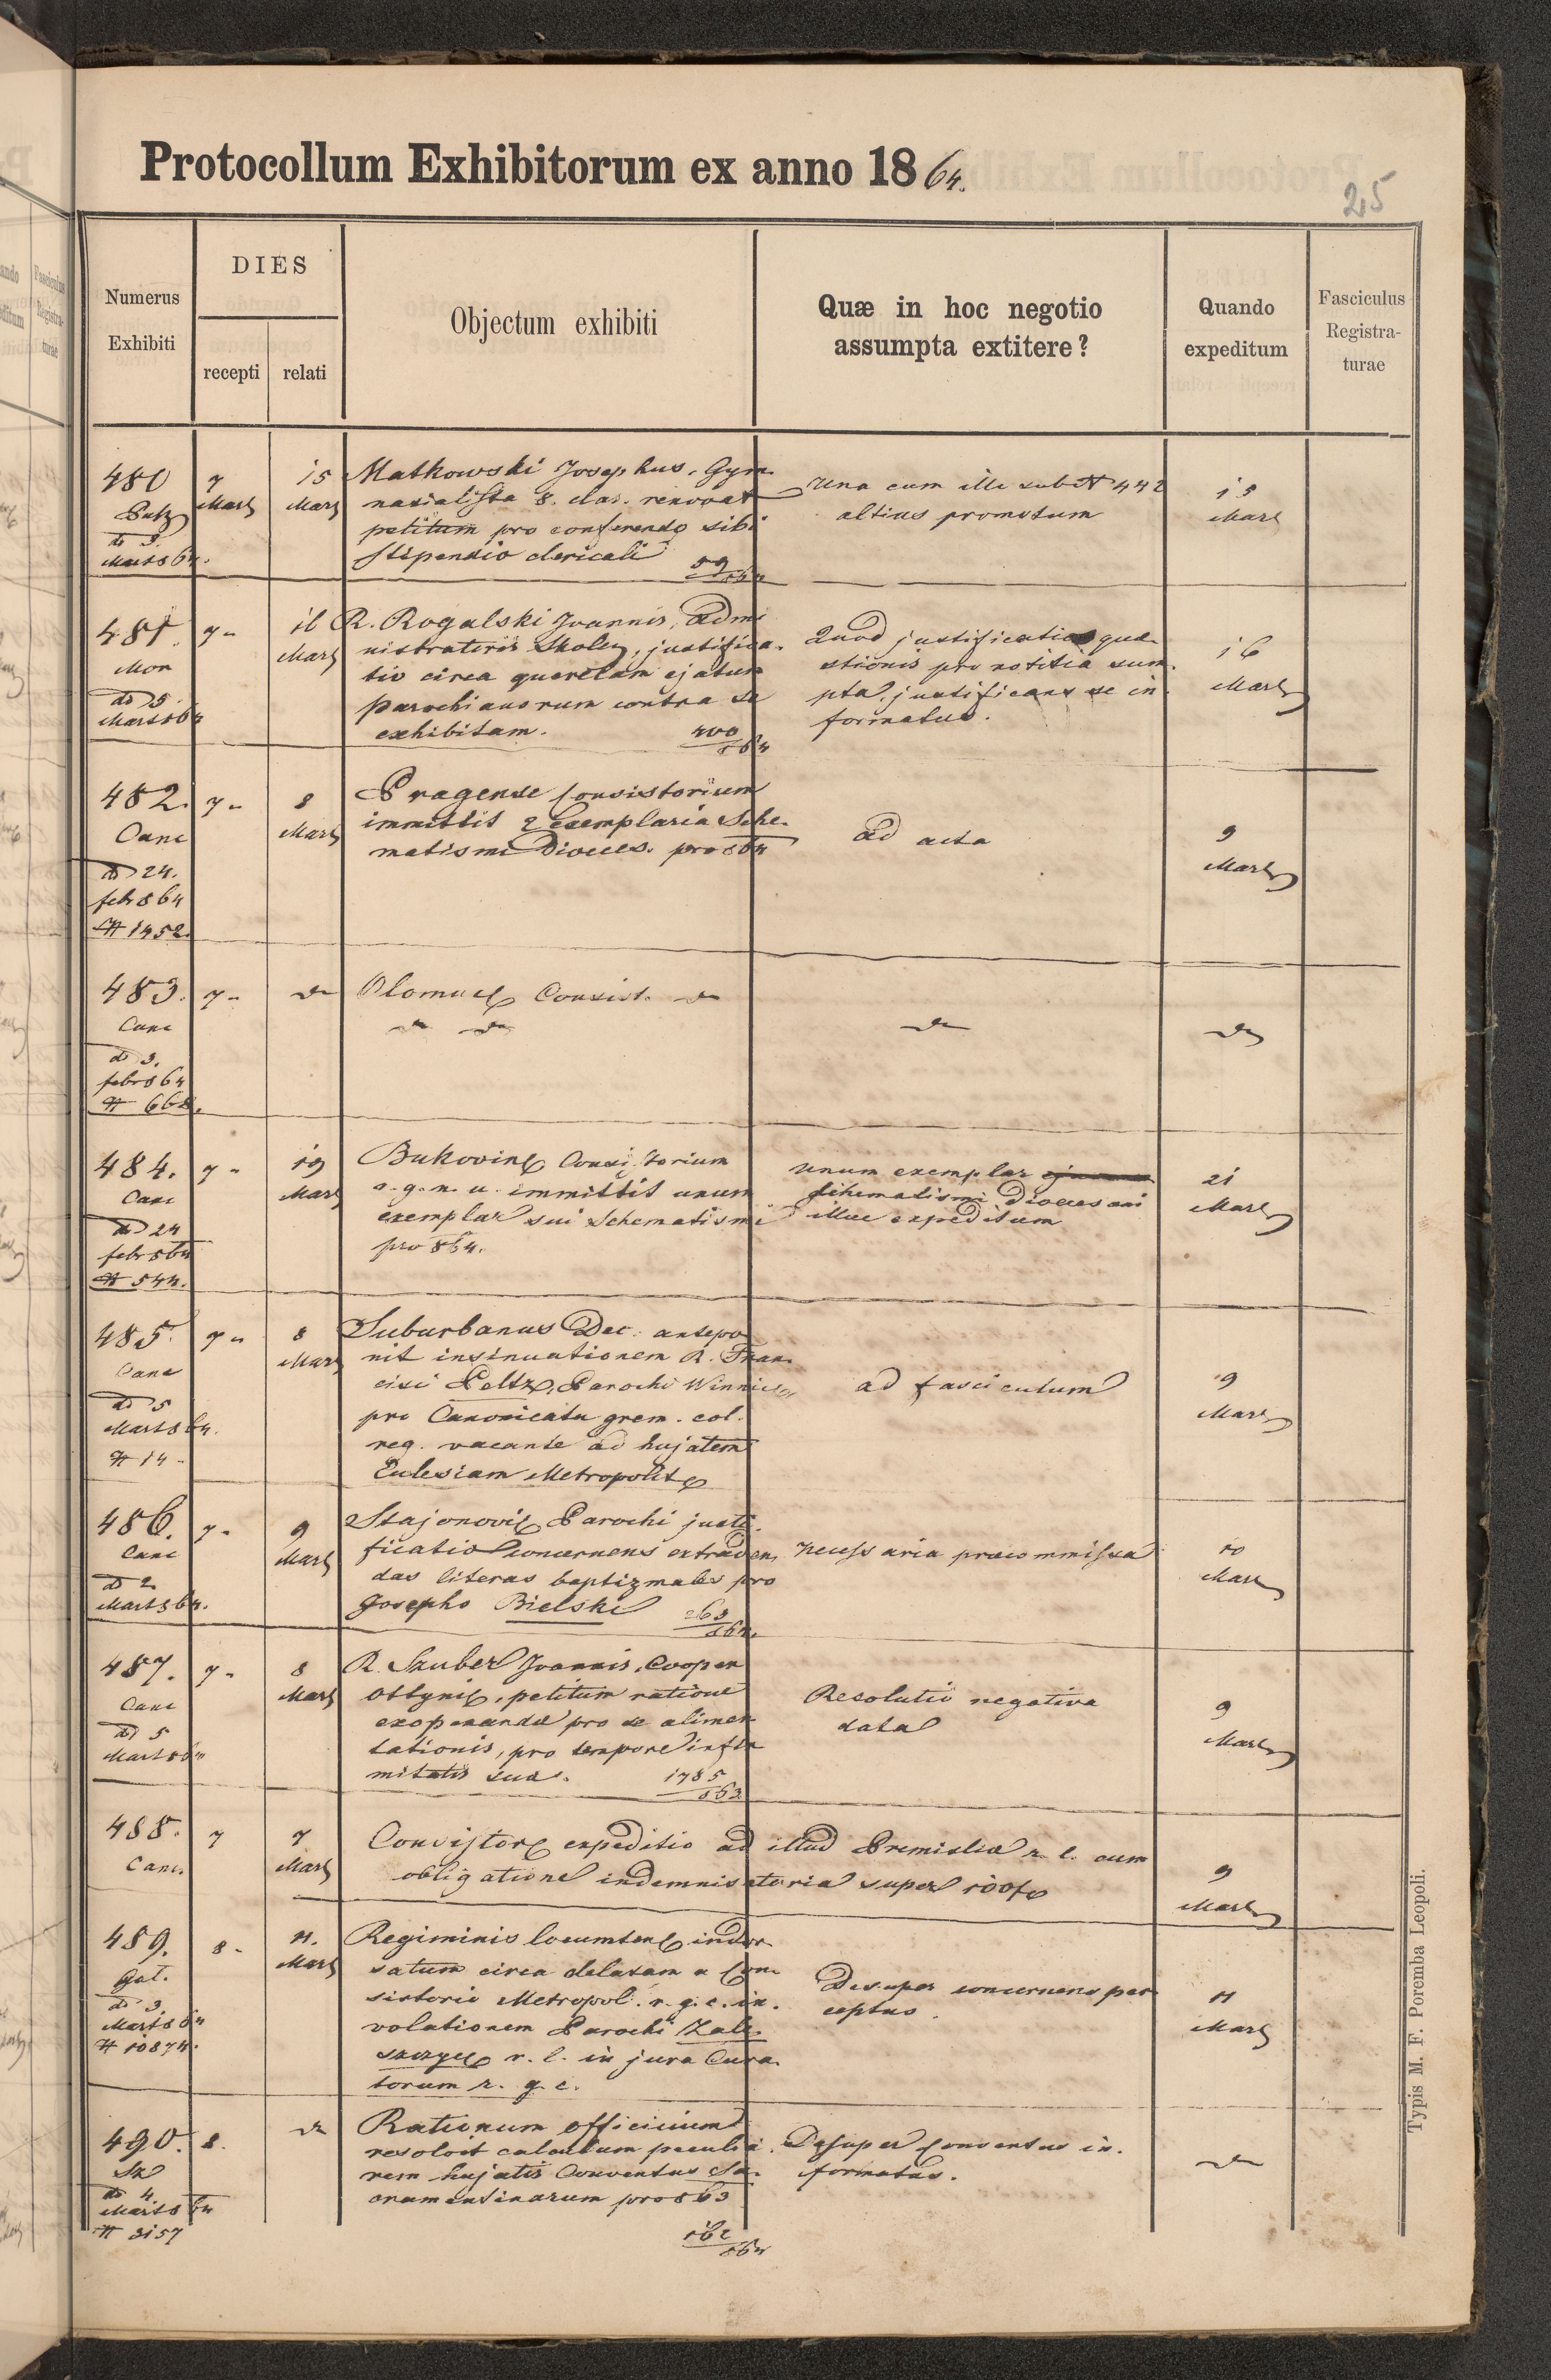 Protocollum Exhibitorum ex anno 1864.
25
Numerus Exhibiti
DIES
recepti
relati
Objectum exhibiti
Quæ in hoc negotio assumpta extitere?
Quando expeditum
Fasciculus Registraturae
480
7 Mart
15 Mart
do 3.
Mart 864.
Matkowski Josephus, Gym-
nasialista 8. clas. renovat
petitum pro conferendo sibi
stipendio clericali
59/864
Una cum illo sub N 442
altius promotum
15
Mart
481.
Mon
do 5.
Mart 864
7 "
16
Mart
R. Rogalski Joannis, admi
nistratoris Skole, justifica-
tio circa querelam ejatum
parochianorum contra se
exhibitam.
400/864
Quod justificatio quae-
stionis pro notitia sum-
pta, justificans se in-
formatus.
16
Mart
482.
Canc
do 24.
febr 864
N 1452.
7 "
8
Mart
Pragense Consistorium
immittit 2 exemplaria Sche-
matismi Dioeces. pro 864
ad acta
9
Mart
483.
Canc
do 3.
febr 864
N 668.
7 "
do
Olomuc Consist. do
do do
do
do
484.
Canc
do 24
febr 864
N 544.
7 "
19
Mart
Bukovin Consistorium
a. g. n. u. immittit unum
exemplar sui Schematismi
pro 864.
unum exemplar
Schematismi Dioecesani
illuc expeditum
21
Mart
485.
Canc
do 5
Mart 864.
N 14 -
7 "
8
Mart
Suburbanus Dec. antepo
nit insinuationem R. Fran-
cisci Peltz, Parochi Winnic
pro Canonicatu grem. col.
reg. vacante ad hujatem
Ecclesiam Metropolit
ad fasciculum
9
Mart
486.
Canc
do 2
Mart 864.
7 "
9
Mart
Stajonovic Parochi justi-
ficatio concernens extraden-
das literas baptizmales pro
Josepho Bielski
263/864.
necessaria praecommissa
10
Mart
487.
Canc
do 5
Mart 864
7 "
8
Mart
R. Szuber Joannis, Cooper
Ottyni, petitum ratione
exoperandae pro se alimen
tationis, pro tempore infir
mitatis suae.
1785/863
Resolutio negativa
data
9
Mart
488.
Canc.
7
7
Mart
Consistor expeditio ad illud Premisliae r. l. cum
obligatione indemnisatoria super 100 f
9
Mart
489.
Gal.
do 3.
Mart 864
N 10874.
8 "
11.
Mart
Regiminis locumten indor
satum circa delatam a Con-
sistorio Metropol. r. g. c. in-
volationem Parochi Zale-
szczyc r. l. in jura Cura-
torum r. g. c.
Desuper concernens per
ceptus.
11
Mart
490.
do 4.
Mart 864
N 3157
8.
do
Rationum officium
resolvit calculum peculia-
rem hujatis Conventus Sa-
cramentinarum pro 863
162/864
Desuper Conventus in-
formatus.
do
Typis M. F. Poremba Leopoli.